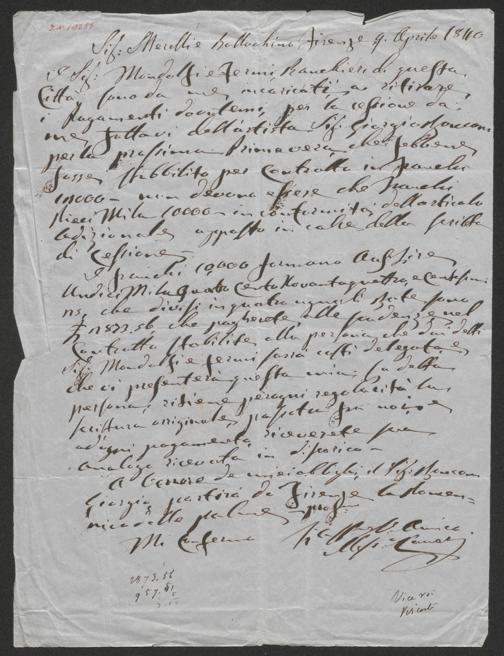 Sig: Merelli e Ballochino Firenze 9. Aprile 1840
I Sig: Mondolfi e Fermi Banchieri di questa
Città sono da me incaricati a ritirare
i pagamenti dovutemi, per la cessione da
me fattavi dell'artista Sig: Giorgio Ronconi
per la prossima Primavera, che sebbene
fosse stabilito per Contratto in Franchi
11000 - non devono essere che Franchi
Dieci Mila 10000 - in conformità dell'articolo
adizionale apposto in calce della scritta
di Cessione -
I Franchi 10000 formano
Undici Mila quattro Cento Novantaquattro e Centesimi
che divisi in quatro uguali Rate sono
che pagherete alle scadenze nel
Contratto stabilite, alla persona che dai detti
Sig: Mondolfi e Fermi sarà costì delegata e
che vi presenterà questa mia; la detta
persona ritiene per ogni regolarità la
scrittura originale passata fra noi e
ad ogni pagamento riceverete
analoga ricevuta in
A tenore de miei obblighi il Sig: Ronconi
Giorgio partirà da Firenze la Domen-
nica delle palme
Mi Confermo
2873.56
957.81